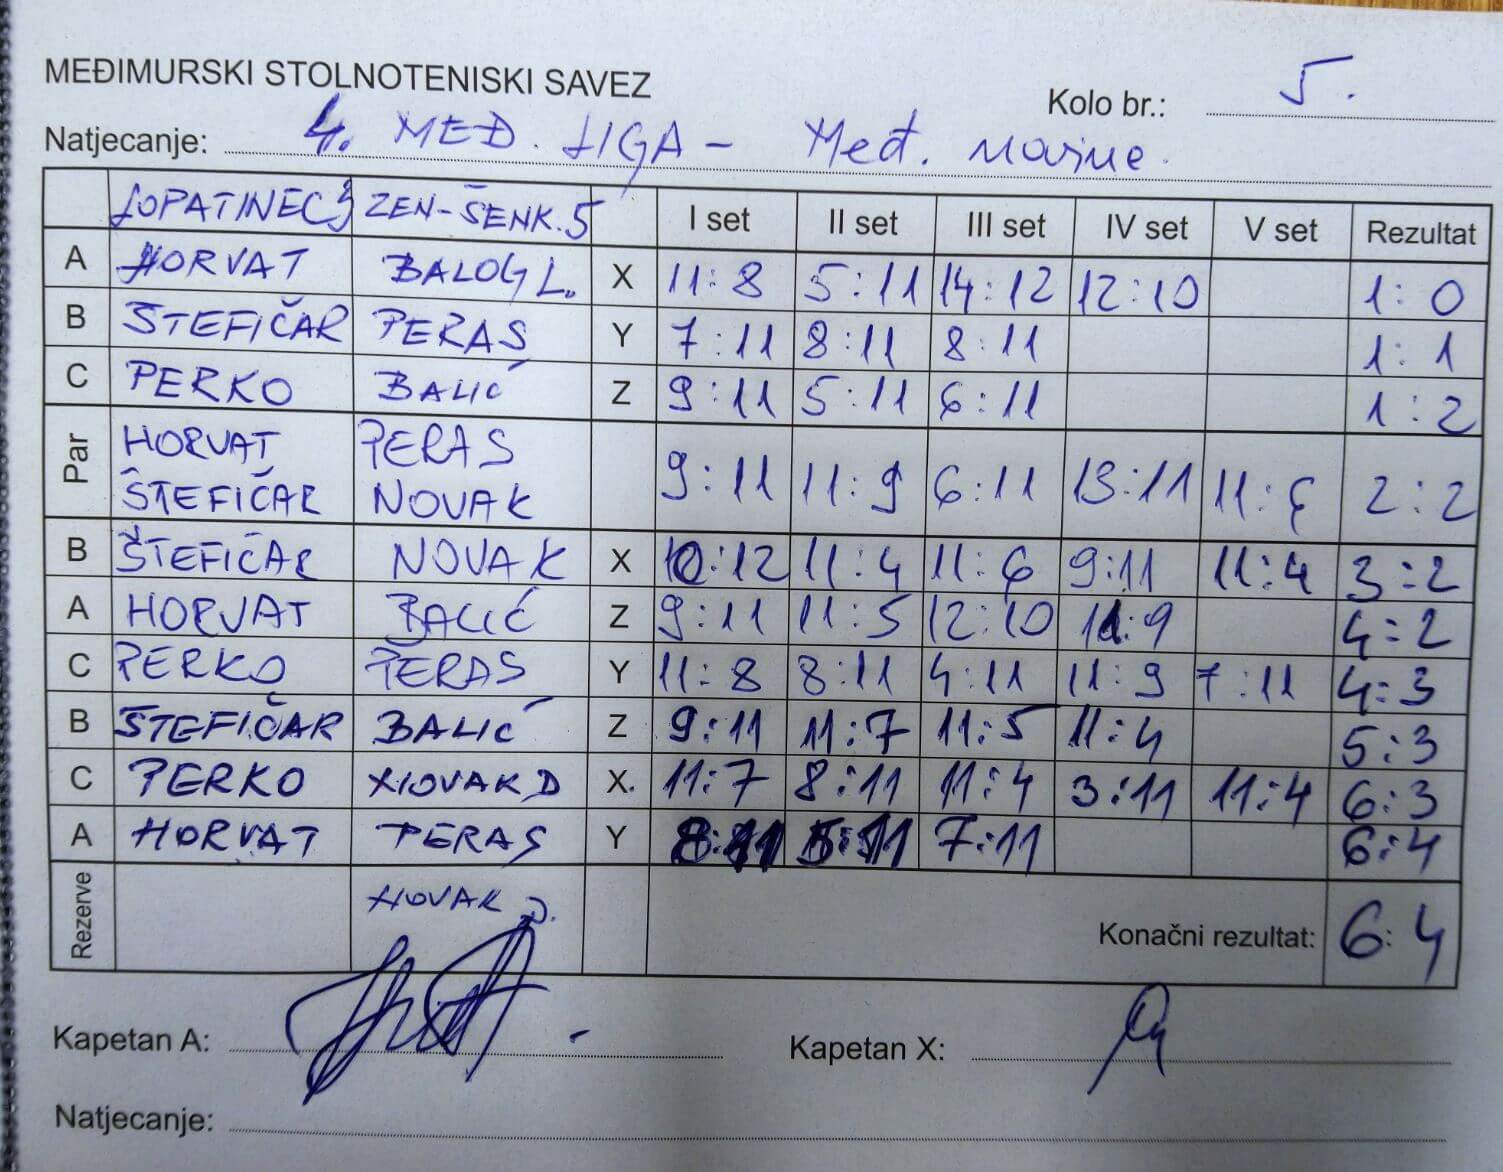 MEĐIMURSKI STOLNOTENISKI SAVEZ
Kolo br.: 5.
Natjecanje: 4. MEĐ. LIGA - Međ. Marine.
LOPATINEC 3 ZEN-ŠENK. 5 I set II set III set IV set V set Rezultat
A HORVAT BALOG L. X 11:8 5:11 14:12 12:10 1:0
B ŠTEFIČAR PERAS Y 7:11 8:11 8:11 1:1
C PERKO BALIĆ Z 9:11 5:11 6:11 1:2
Par HORVAT PERAS
ŠTEFIČAR NOVAK 9:11 11:9 6:11 13:11 11:6 2:2
B ŠTEFIČAR NOVAK X 10:12 11:4 11:6 9:11 11:4 3:2
A HORVAT BALIĆ Z 9:11 11:5 12:10 11:9 4:2
C PERKO PERAS Y 11:8 8:11 4:11 11:9 7:11 4:3
B ŠTEFIČAR BALIĆ Z 9:11 11:7 11:5 11:4 5:3
C PERKO NOVAK D X. 11:7 8:11 11:4 3:11 11:4 6:3
A HORVAT PERAS Y 8:11 5:11 7:11 6:4
Rezerve NOVAK D. Konačni rezultat: 6:4
Kapetan A: Kapetan X:
Natjecanje: